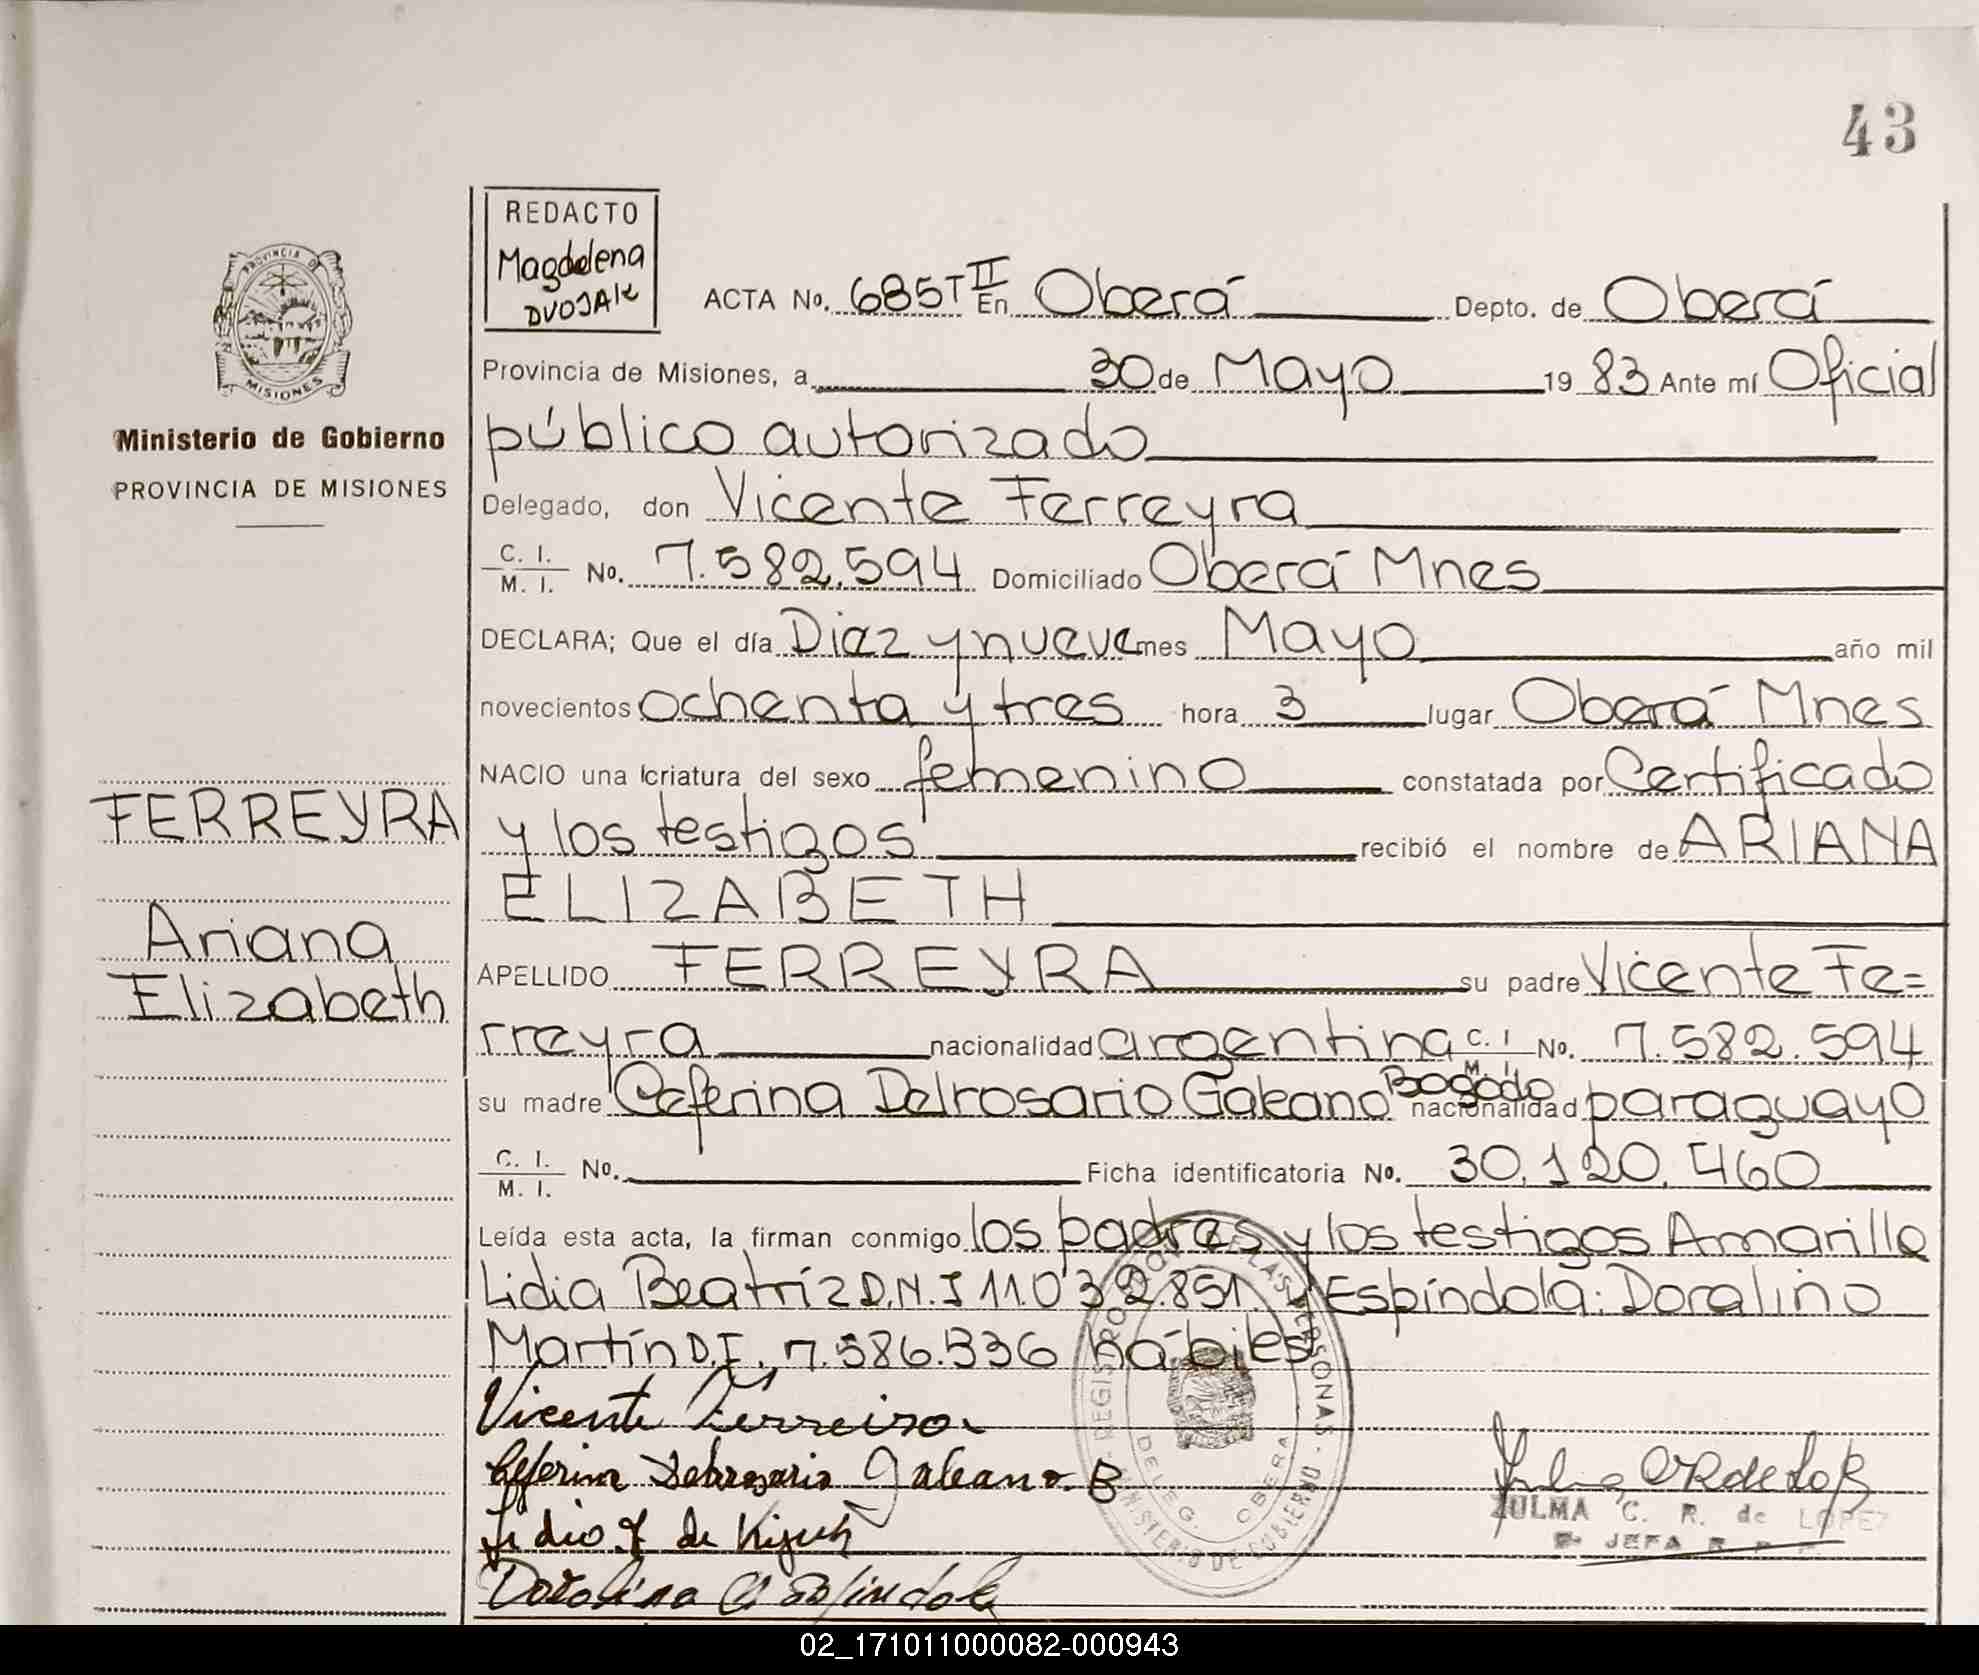 43
REDACTO
Magdalena
DVOJAK
PROVINCIA DE
MISIONES
Ministerio de Gobierno
PROVINCIA DE MISIONES
ACTA No. 685 T II En Oberá Depto. de Oberá
Provincia de Misiones, a 30 de Mayo 19 83 Ante mí Oficial
público autorizado
Delegado, don Vicente Ferreyra
C. I. M. I. No. 7.582.594 Domiciliado Oberá Mnes
DECLARA; Que el día Diez y nueve mes Mayo año mil
novecientos ochenta y tres hora 3 lugar Oberá Mnes
NACIO una criatura del sexo femenino constatada por Certificado
y los testigos recibió el nombre de ARIANA
ELIZABETH
FERREYRA
Ariana
Elizabeth
APELLIDO FERREYRA su padre Vicente Fe=
rreyra nacionalidad argentina C. I. M. I. No. 7.582.594
su madre Ceferina Delrosario Galeano Bogado nacionalidad paraguayo
C. I. M. I. No. Ficha identificatoria No. 30.120.460
Leída esta acta, la firman conmigo los padres y los testigos Amarilla
Lidia Beatríz D.N.I 11.032.851. y Espíndola: Doralino
Martín D.I. 7.586.336 hábiles
Vicente Ferreiro
Ceferina Delrosario Galeano B
Lidia A de
Doralino Espindola
REGISTRO DE LAS PERSONAS
DELEG. OBERA
MINISTERIO DE GOBIERNO
ZULMA C. R. de LOPEZ
JEFA R P P
02_171011000082-000943